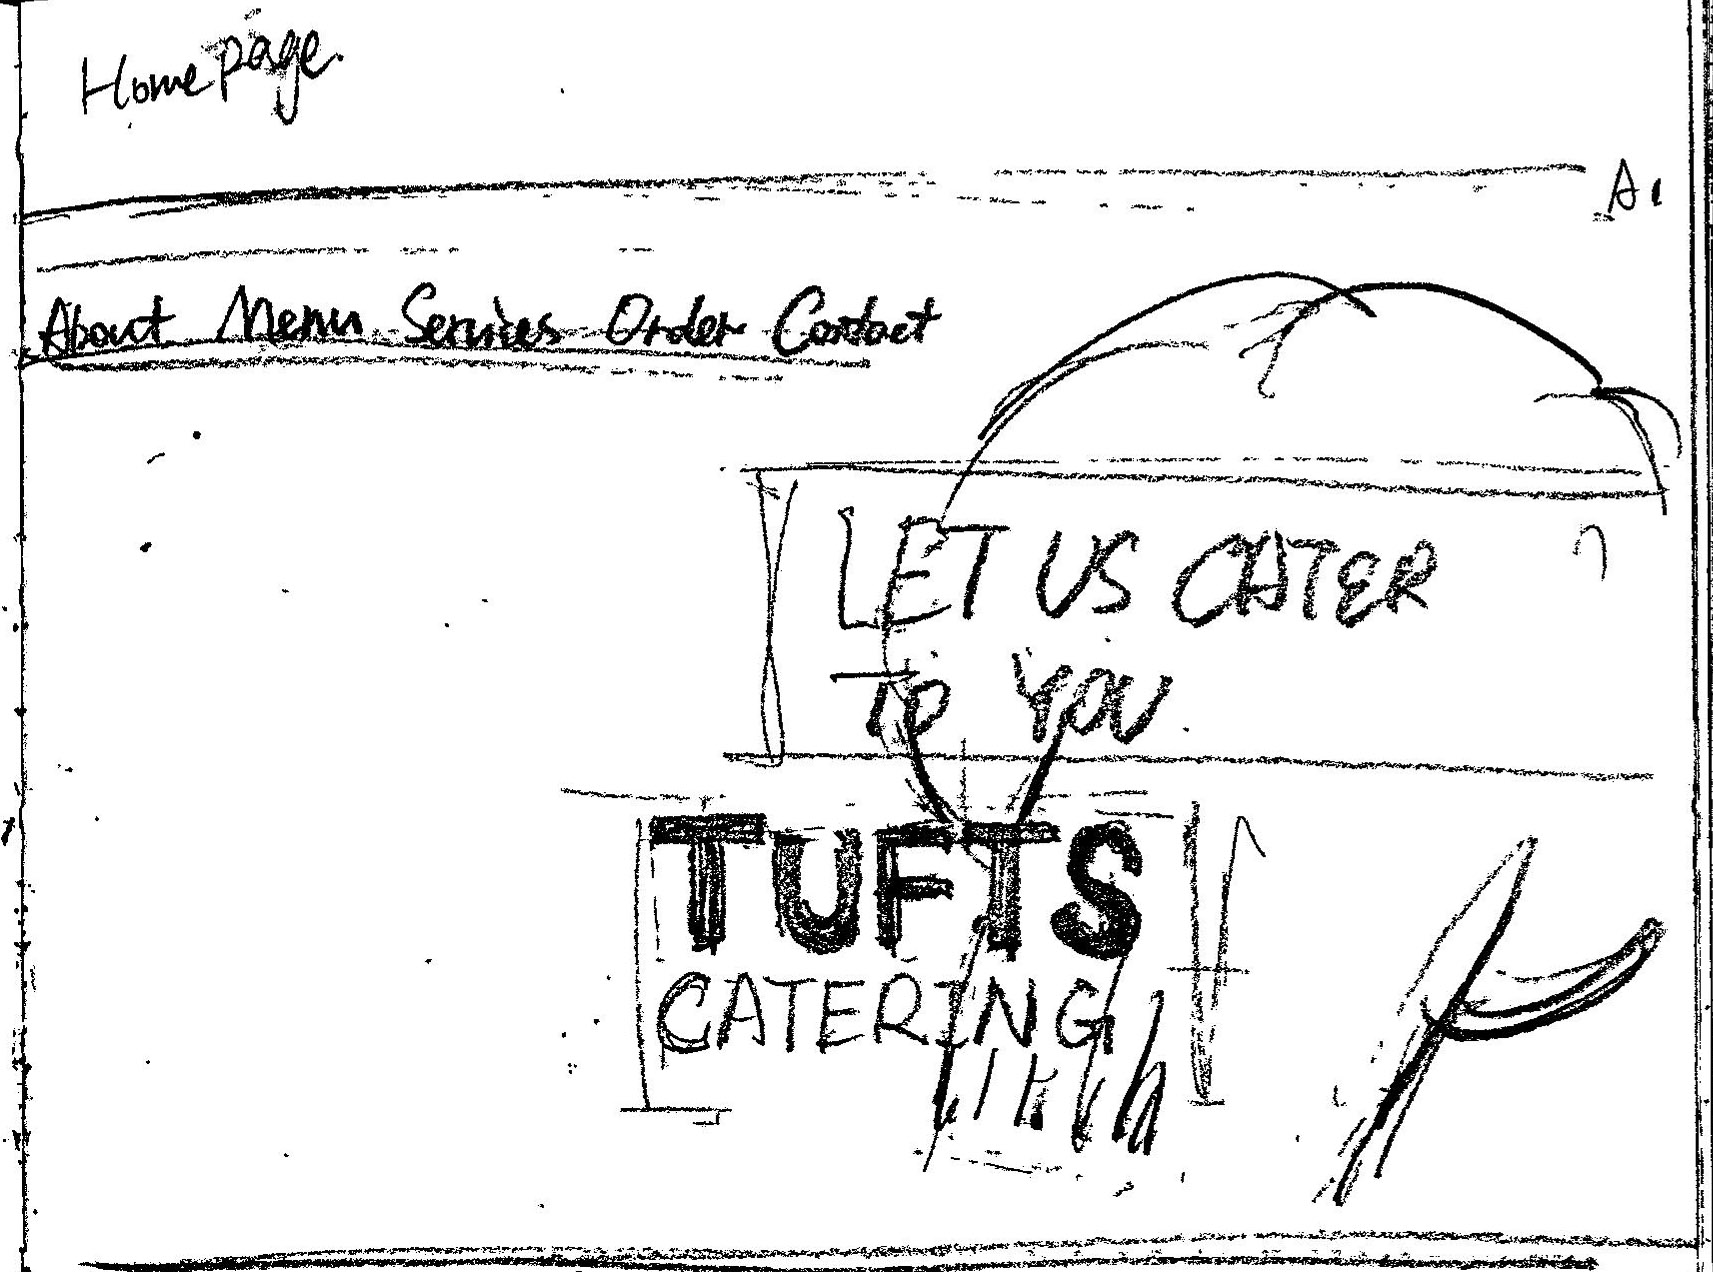 Homepage
About Menu Services Order Contact
LET US CATER
TO YOU
TUFTS
CATERING